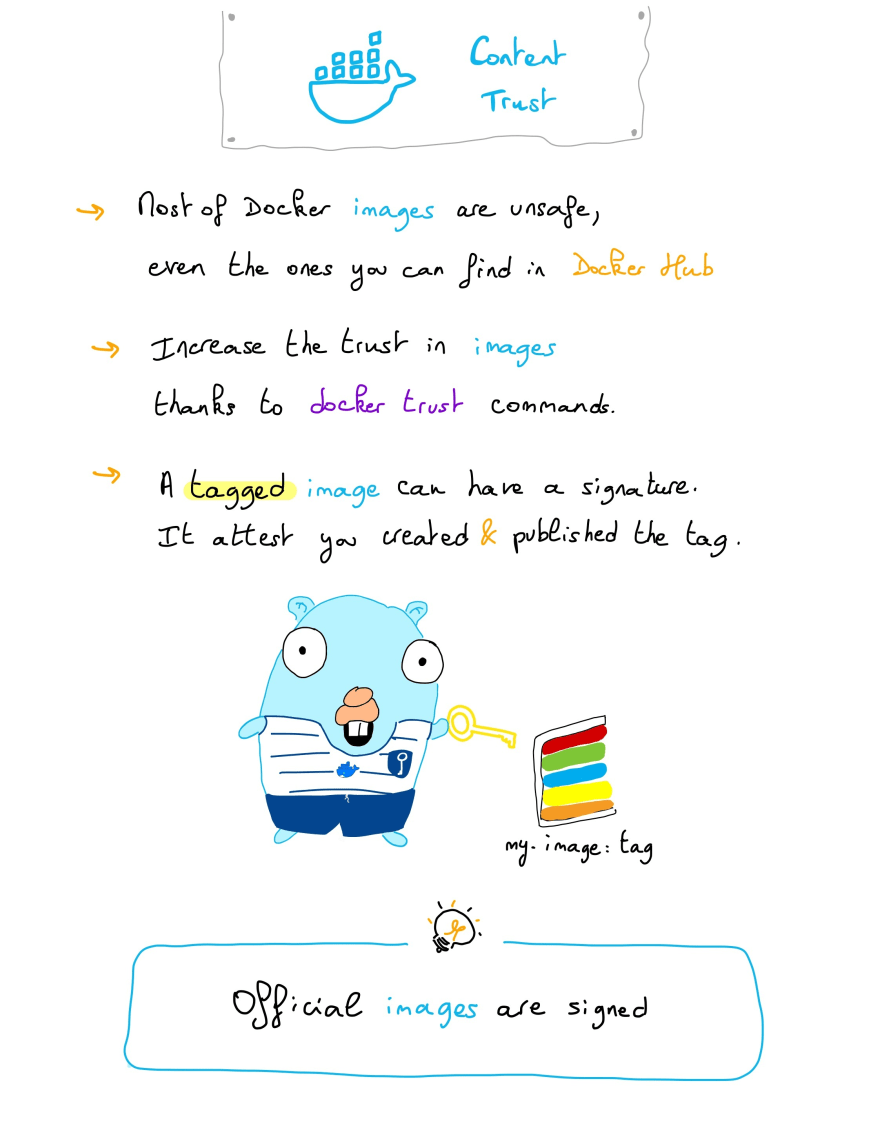 Content
Trust
→ Most of Docker images are unsafe,
even the ones you can find in Docker Hub
→ Increase the trust in images
thanks to docker trust commands.
→ A tagged image can have a signature.
It attest you created & published the tag.
my-image:tag
Official images are signed